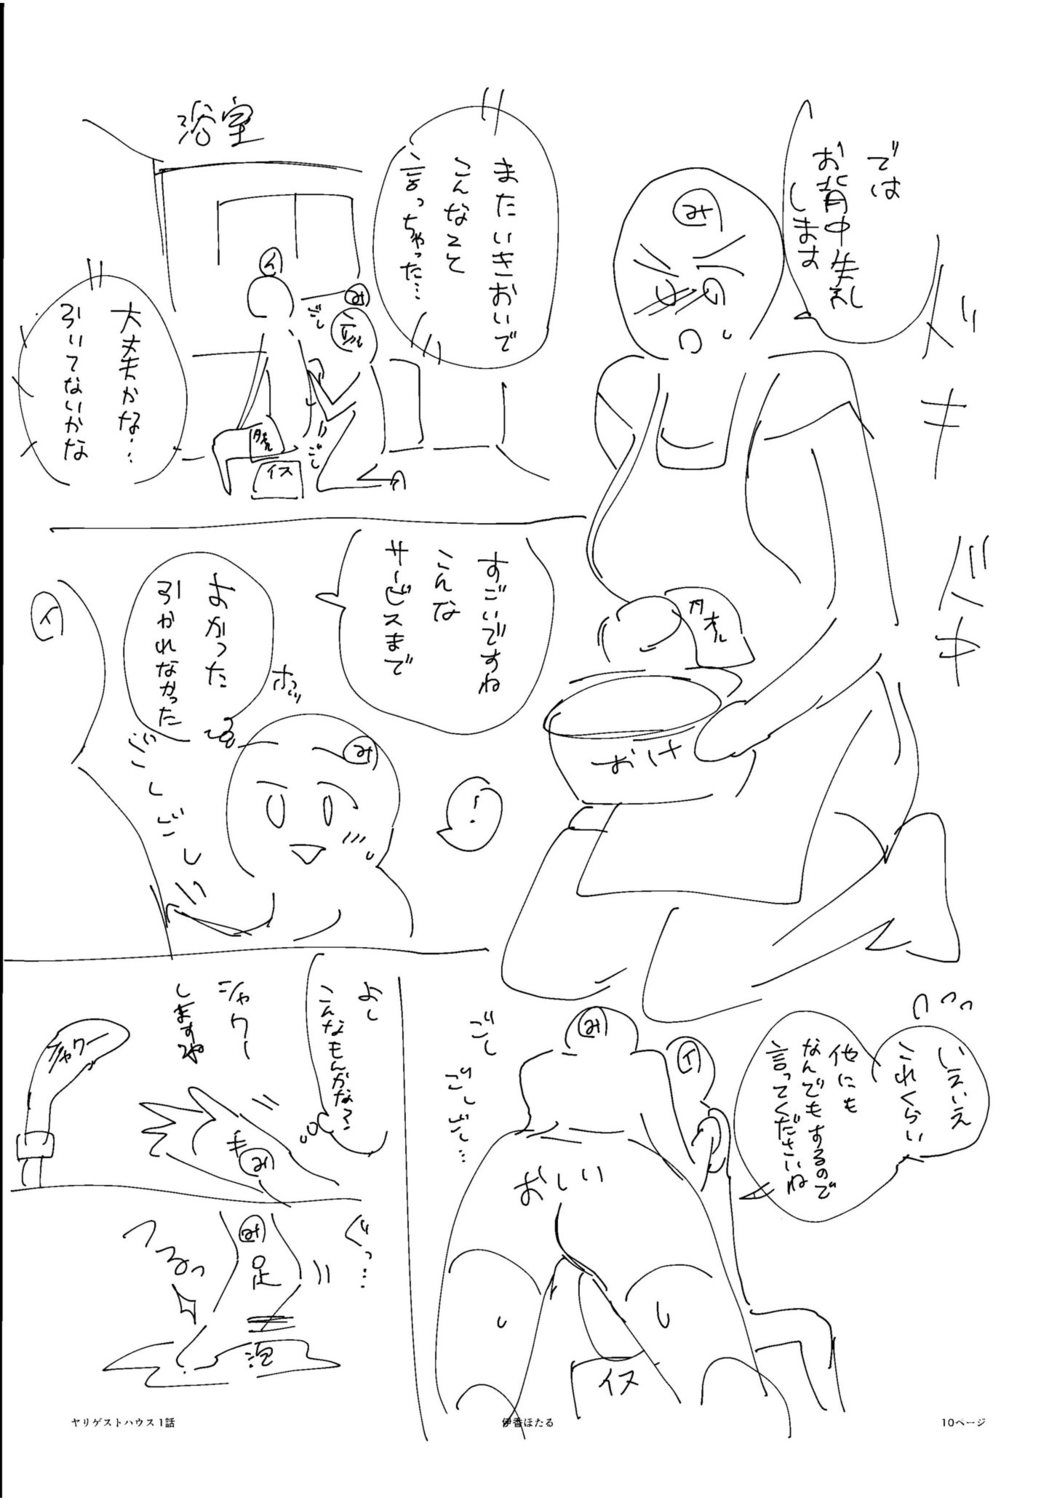 では
お背中失礼
します
み
ドキ
ドキ
タオル
おけ
またいきおいで
こんなこと
言っちゃった…
浴室
イ
み
ごし
ごし
タオル
イス
大丈夫かな…
引いてないかな
すごいですね
こんな
サービスまで
よかった
引かれなかった
ホッ
イ
み
!
ごしごし
いえいえ
これくらい
他にも
なんでもするので
言ってくださいね
み
イ
ごし
ごしごし…
おしい
イス
よし
こんなもんかな?
シャワー
しますね
シャワー
手
み
ぐっ…
み
足
泡
つるっ
ヤリゲストハウス1話
伊香ほたる
10ページ